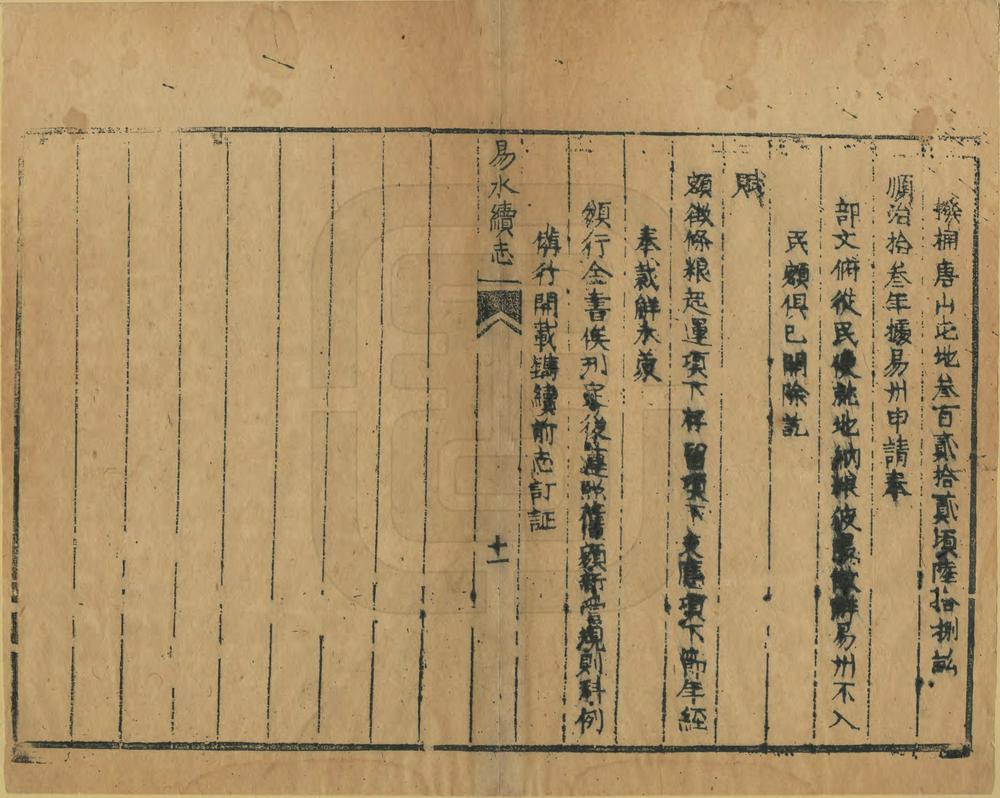 撥補唐山屯地叁百貳拾貳頃陸拾捌畝
順治拾叁年據易州申請奉
部文俯從民便就地納粮彼縣徵解易州不入
民額俱已開除訖
賦
額徵條粮起運項下存留項下支應項下節年經
奉裁觧米荳
頒行全書俟刋定後遵照舊額新増規則科例
備行開載鐫續前志訂証
易水續志
十一